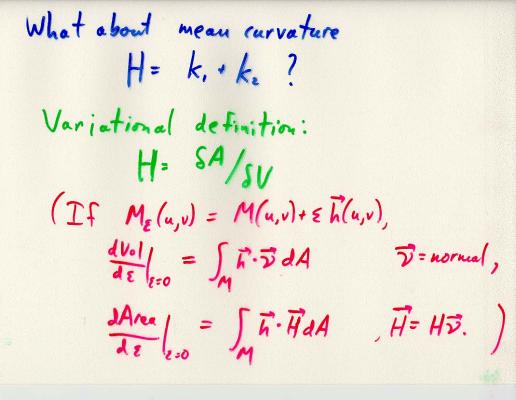 What about mean curvature
H = k₁ + k₂ ?
Variational definition:
H = δA/δV
(If M_ε(u,v) = M(u,v) + ε h⃗(u,v),
dVol/dε |_ε=0 = ∫_M h⃗·ν⃗ dA    ν⃗ = normal,
dArea/dε |_ε=0 = ∫_M h⃗·H⃗ dA    , H⃗ = Hν⃗. )